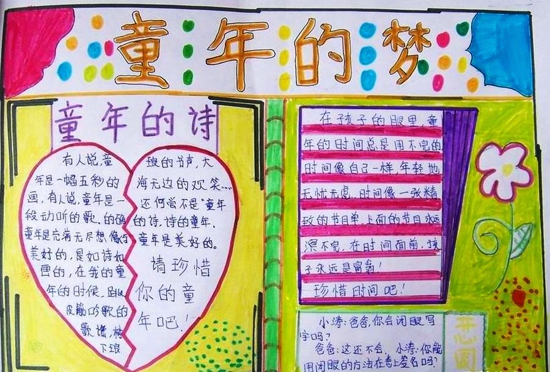 童年的梦
童年的诗
有人说,童
年是一幅五彩的
画,有人说,童年是一
段动听的歌,的确
童年是充满无尽想像的
美好的,是如诗如
画的,在我的童
年的时候,
皮筋的歌的
歌谱,
下班
班的节声,大
海无边的欢笑……
还何尝不是童年
的诗,诗的童年,
童年是美好的。
请珍惜
你的童
年吧!
在孩子的眼里,童
年的时间总是用不完的
时间像自己一样,年轻地
无忧无虑,时间像一张精
致的节目单,上面的节目永远
演不完,在时间面前,孩
子永远是富翁!
珍惜时间吧!
小涛:爸爸,你会闭眼写
字吗?
爸爸:这还不会,小涛:你能
用闭眼的方法在 上签名吗?
开心园